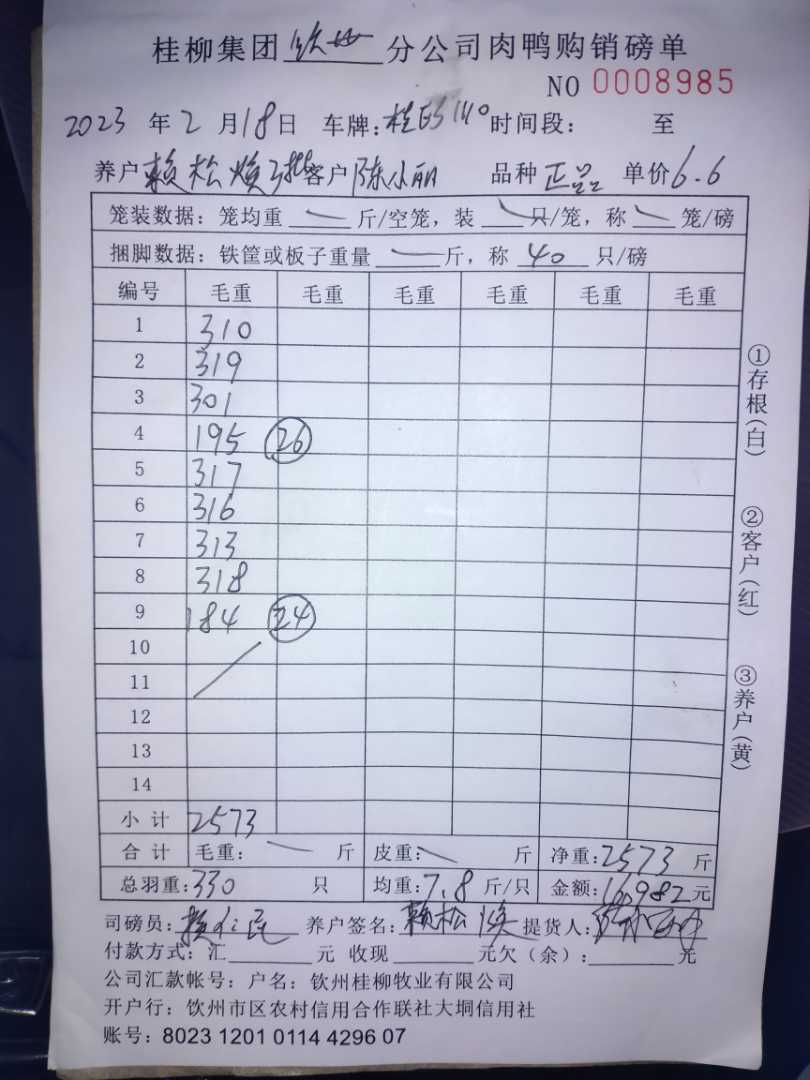 桂柳集团 钦州 分公司肉鸭购销磅单
NO 0008985
2023 年 2 月 18 日 车牌: 时间段: 至
养户 赖松焕 客户 陈小丽 品种 正品 单价 6.6
笼装数据：笼均重 — 斤/空笼，装 — 只/笼，称 — 笼/磅
捆脚数据：铁筐或板子重量 — 斤，称 40 只/磅
编号 毛重 毛重 毛重 毛重 毛重 毛重
1 310
2 319
3 301
4 195 26
5 317
6 316
7 313
8 318
9 184 24
10
11
12
13
14
小计 2573
合计 毛重： — 斤 皮重： — 斤 净重：2573 斤
总羽重：330 只 均重：7.8 斤/只 金额：16982 元
司磅员： 养户签名：赖松焕 提货人：
付款方式：汇 元 收现 元欠（余）： 元
公司汇款帐号：户名：钦州桂柳牧业有限公司
开户行：钦州市区农村信用合作联社大垌信用社
账号：8023 1201 0114 4296 07
①存根(白)
②客户(红)
③养户(黄)